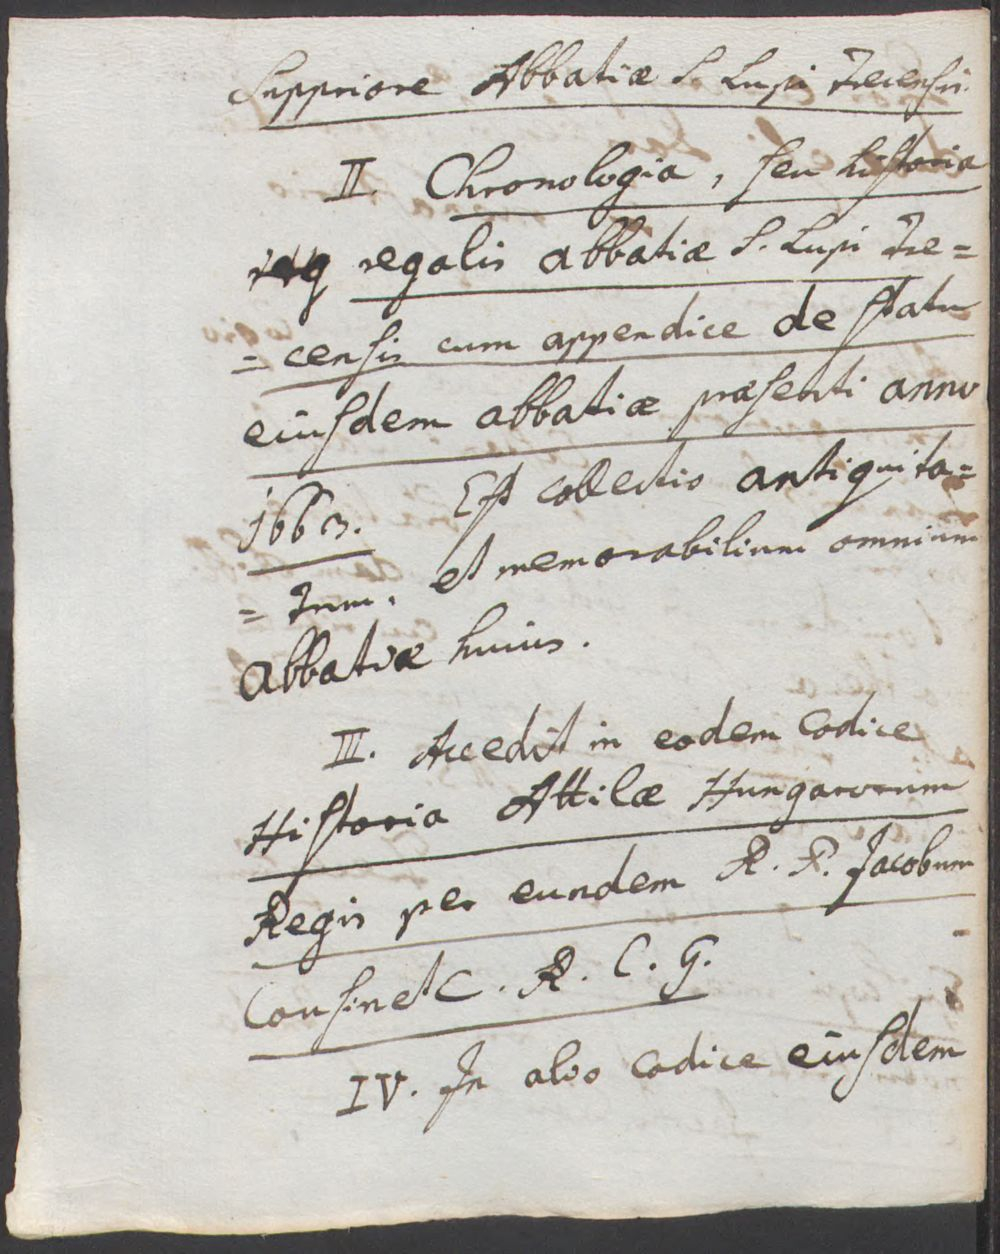 Suppriore Abbatiæ S. Lupi Trecensis.
II. Chronologia, seu historia
regalis abbatiæ S. Lupi Tre=
=censis cum appendice de statu
eiusdem abbatiæ præsenti anno
1663. Est collectio antiquita=
=tum, et memorabilium omnium
abbatiæ huius.
III. Accedit in eodem Codice
Historia Attilæ Hungarorum
Regis per eundem R. P. Jacobum
Cousinet C. R. C. G.
IV. In alio Codice eiusdem